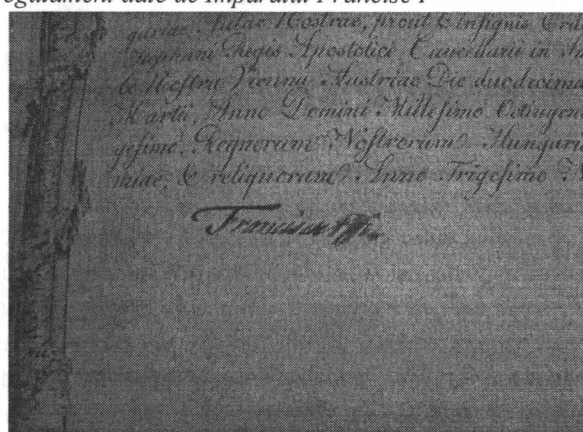 egulament date de Împăratul Francisc I
guriae Aulae Nostrae, prout & Insignis
Stephani Regis Apostolici Cancellario in
le Nostra Vienna Austriae Die duodecima
Martii, Anno Domini Millesimo Octingen
gesimo, Regnorum Nostrorum Hungari
miae, & reliquorum Anno Trigesimo
Franciscus